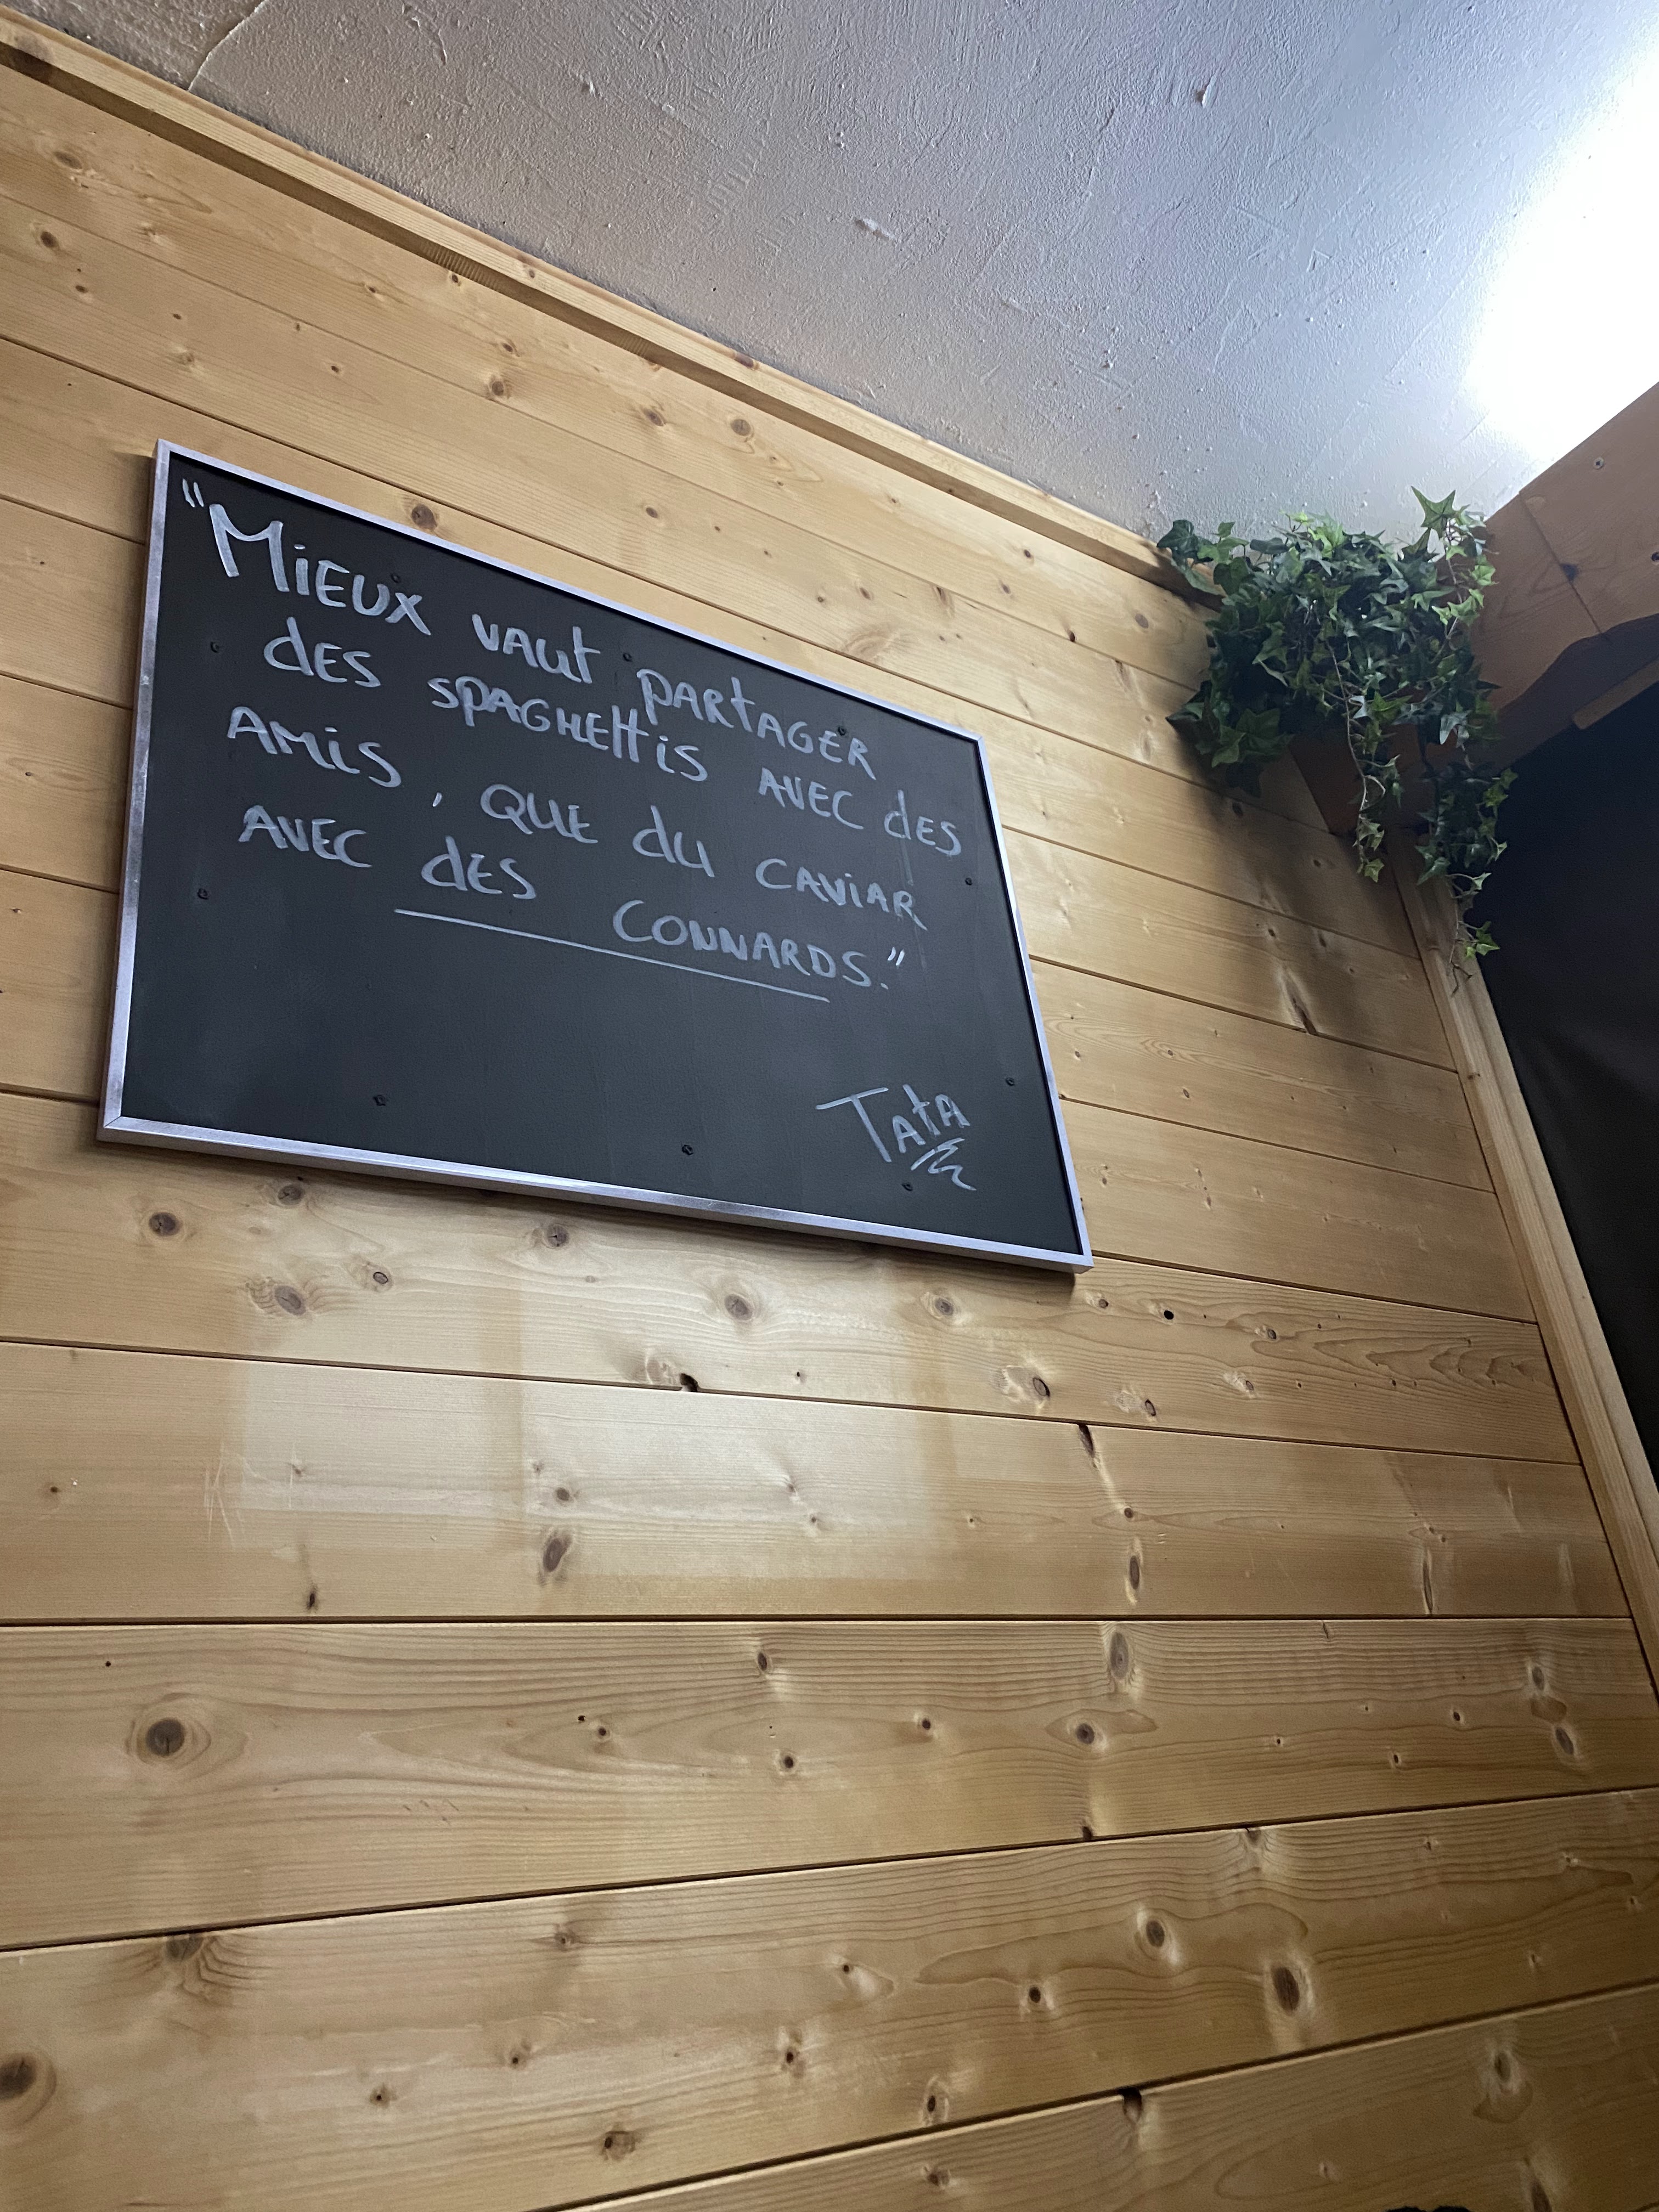 "MiEUX VAUt PARtAGER
dES SPAGHEttiS AVEC dES
AMiS, QUE dU CAViAR
AVEC dES CONNARDS."
TAtA